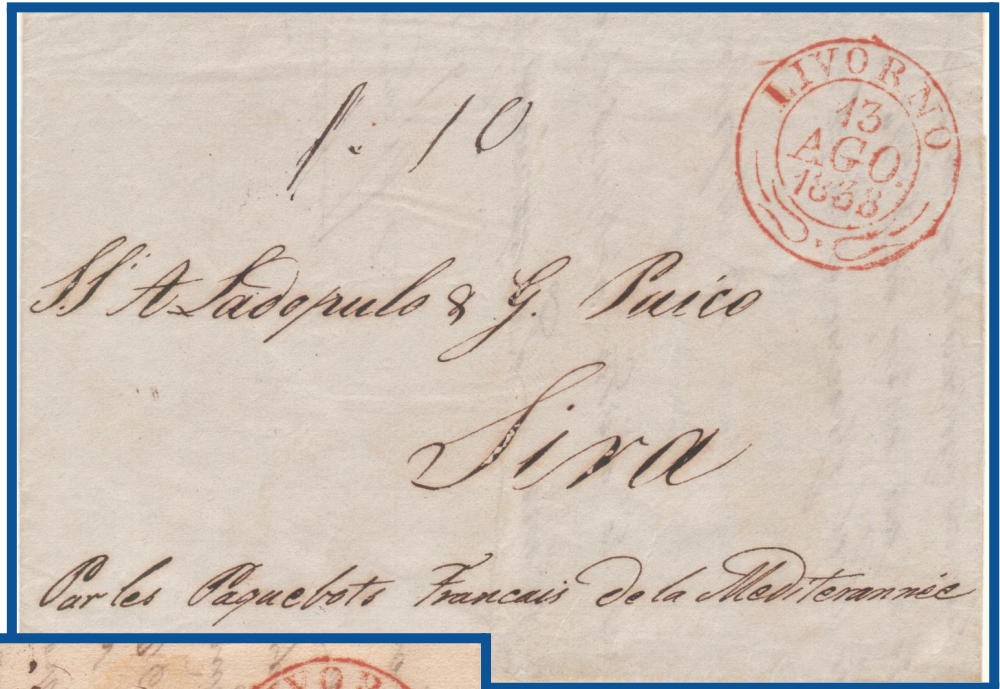 LIVORNO
13
AGO.
1838
1. 10
SS. A Ladopulo & G. Paico
Sira
Par les Paquebots Francais de la Mediterannée